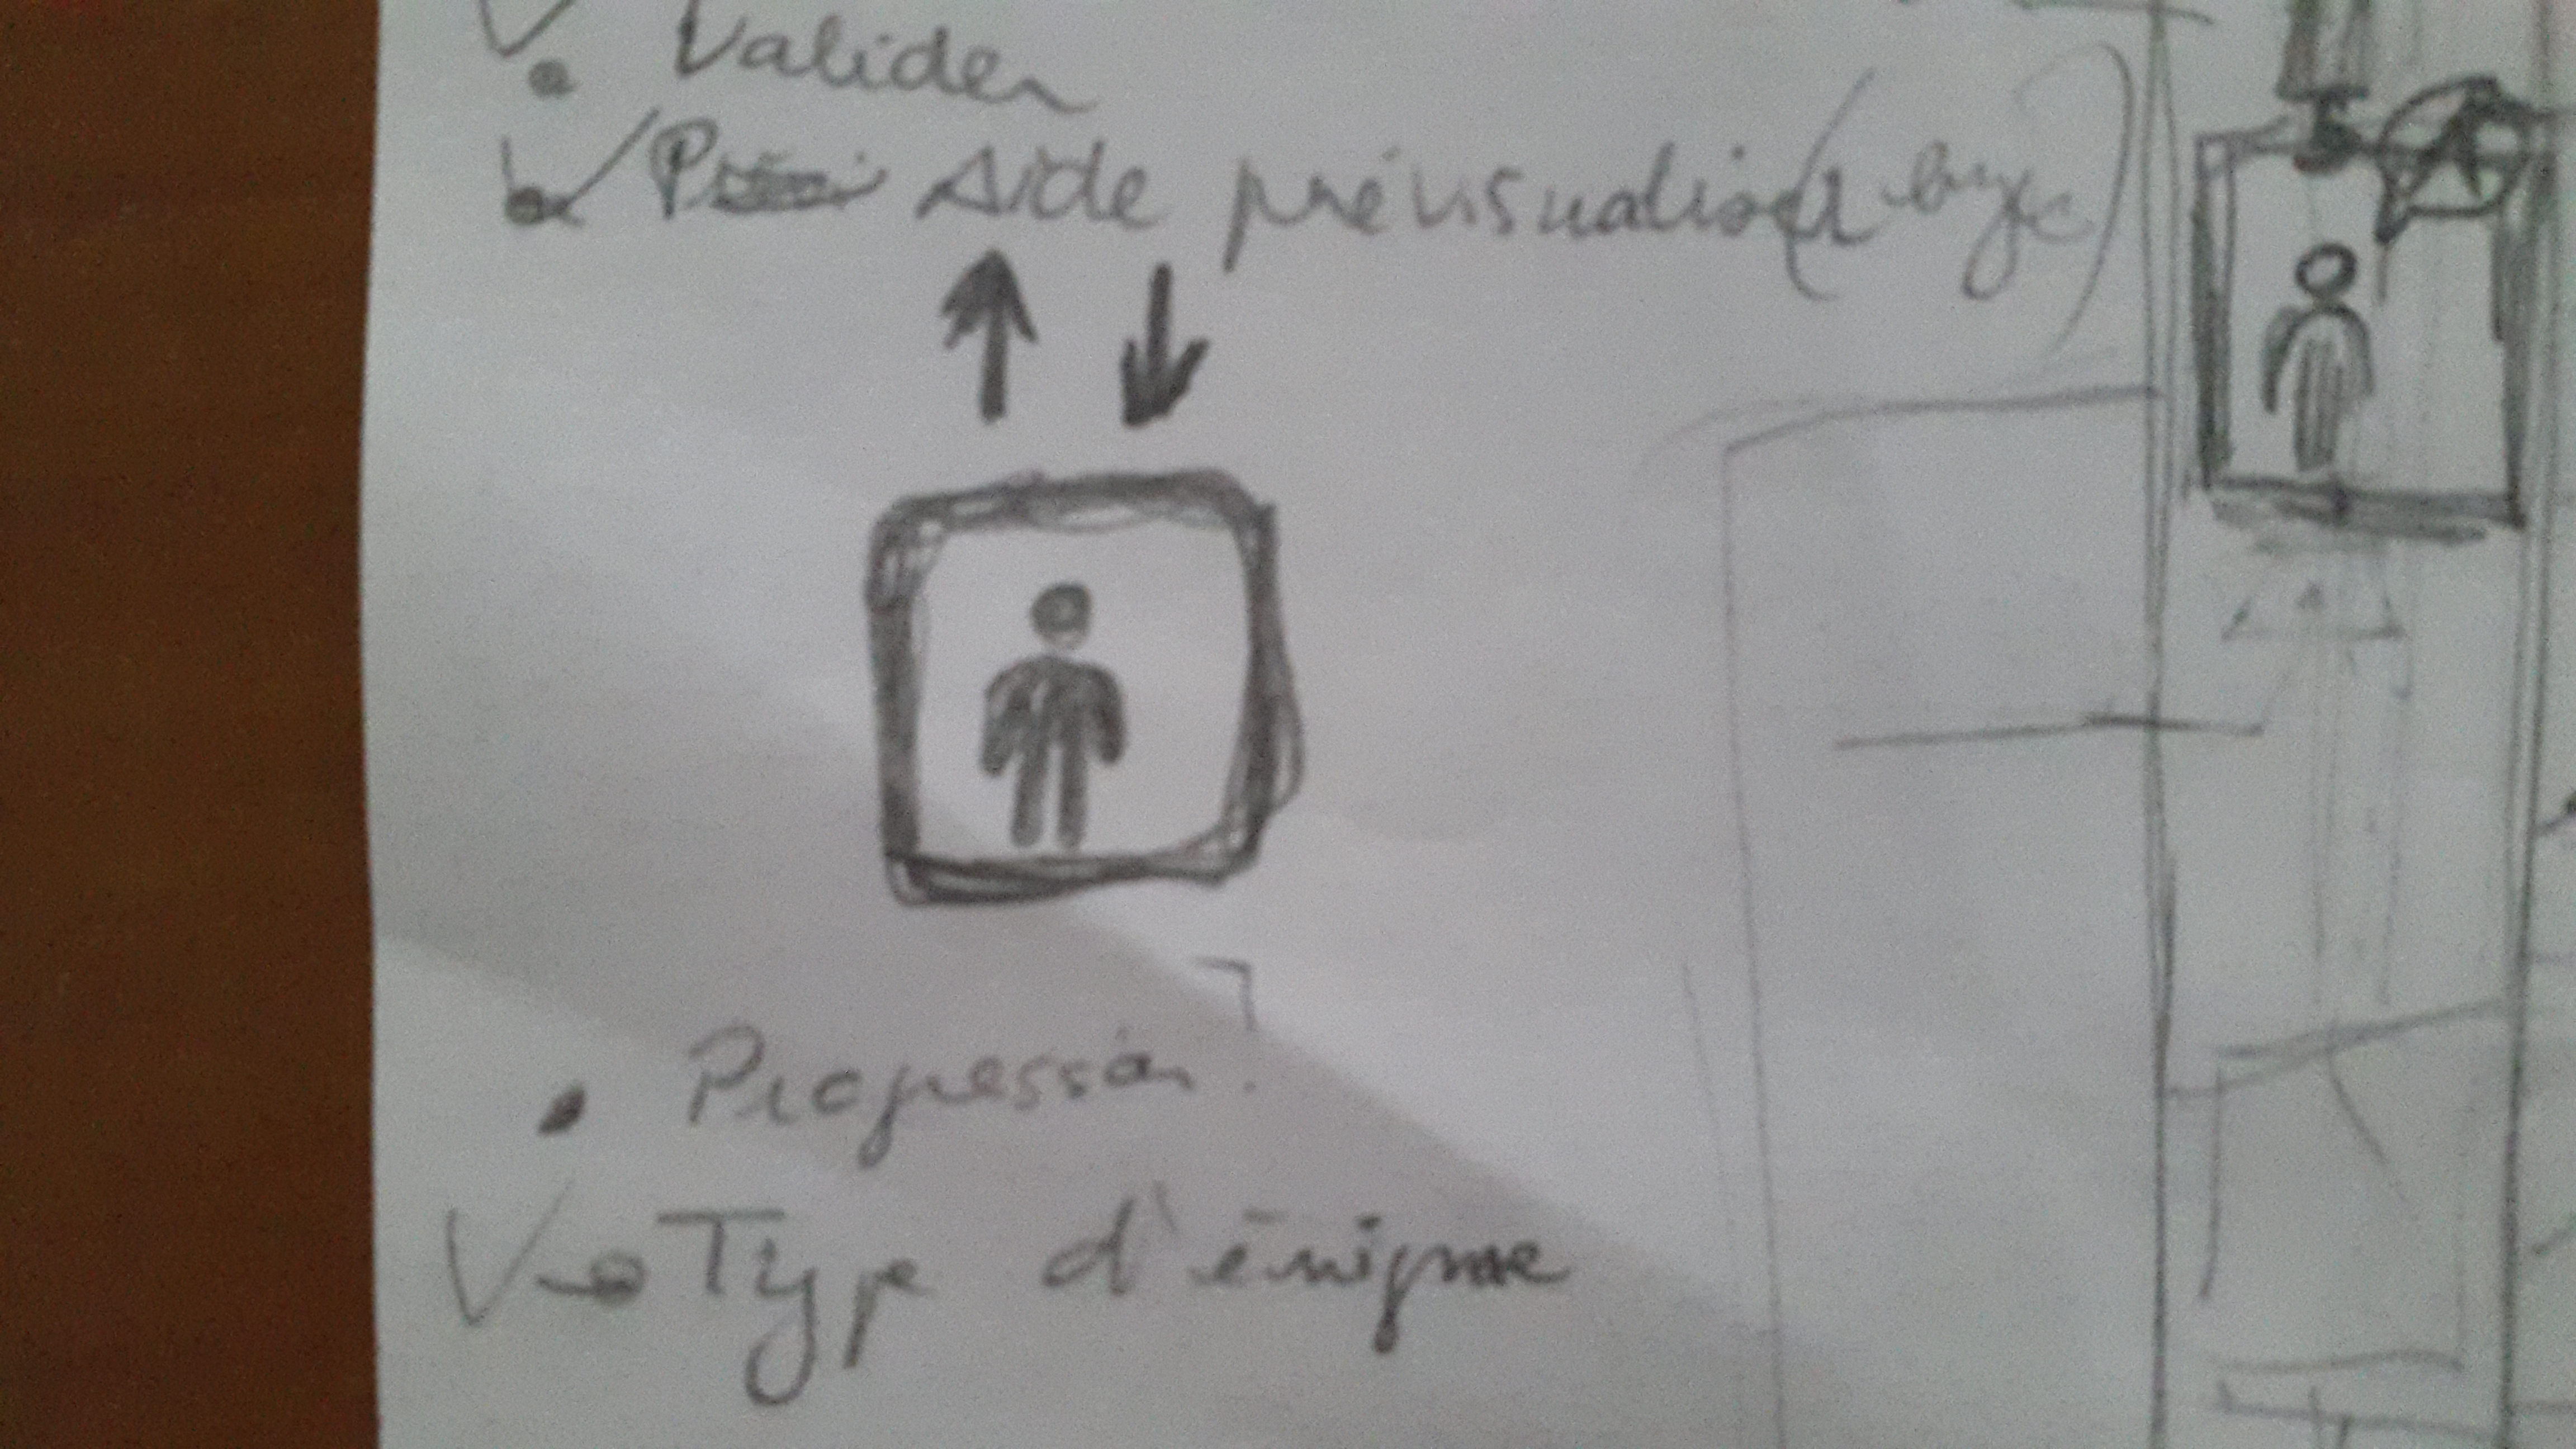 Valider
Aide prévisualisa
Progression.
Type d'énigme